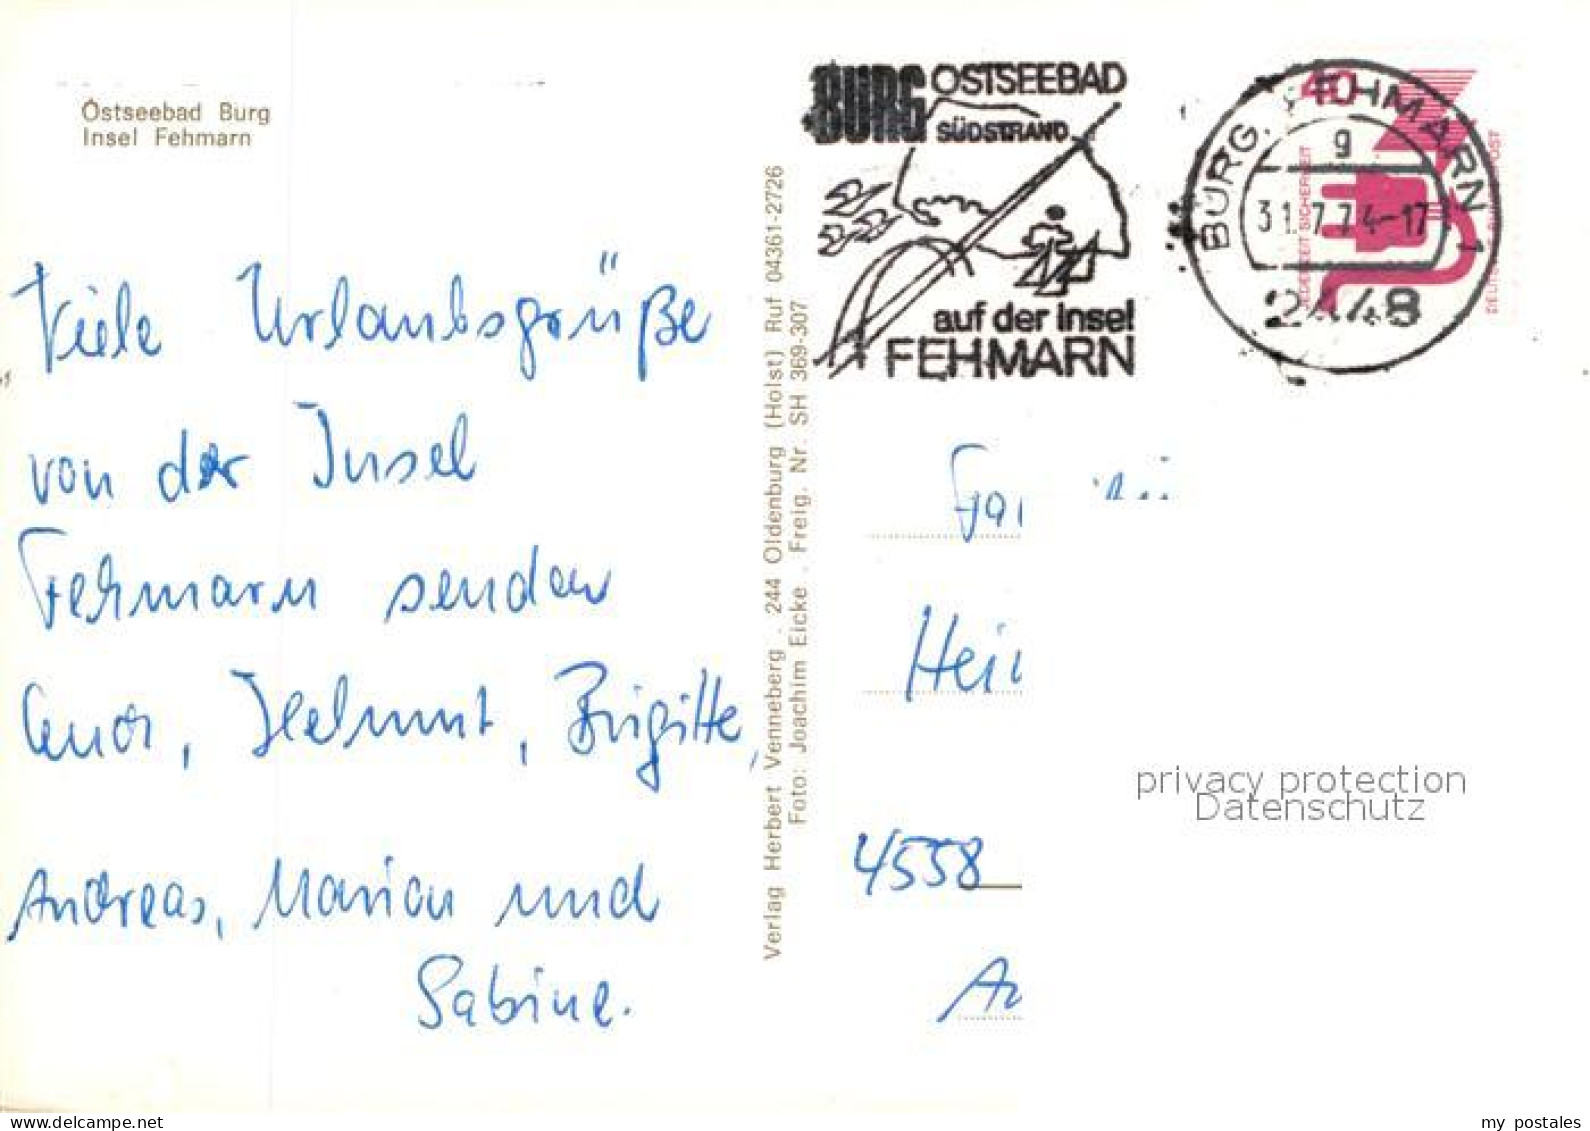 Ostseebad Burg
Insel Fehmarn
Viele Urlaubsgrüße
von der Insel
Fehmarn senden
Euch, Helmut, Brigitte,
Andreas, Marion und
Sabine.
Verlag Herbert Venneberg . 244 Oldenburg (Holst) Ruf 04361-2726
Foto: Joachim Eicke . Freig. Nr. SH 369-307
BURG OSTSEEBAD
SÜDSTRAND
auf der Insel
FEHMARN
BURG, FEHMARN 1
g
31.7.74-17
2448
40
JEDERZEIT SICHERHEIT
4558
privacy protection
Datenschutz
my postales
www.delcampe.net